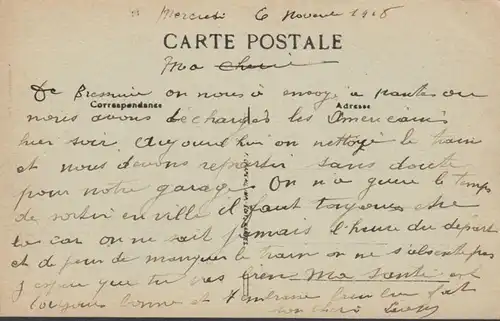 Mercredi 6 Novembre 1918
CARTE POSTALE
Ma Cherie
De on nous a envoyé a ou
Correspondance Adresse
nous avons déchargés les Américains
hier soir Aujourd'hui on nettoye le train
et nous devons repartir sans doute
pour notre garage. On n'a guere le temps
de sortir en ville il faut toujours etre
la car on ne sait jamais l'heure du depart
et de peur de manquer le train on ne s'absente pas
J'espère que tu vas bien Ma santé est
toujours bonne et t'embrasse bien fort
ton